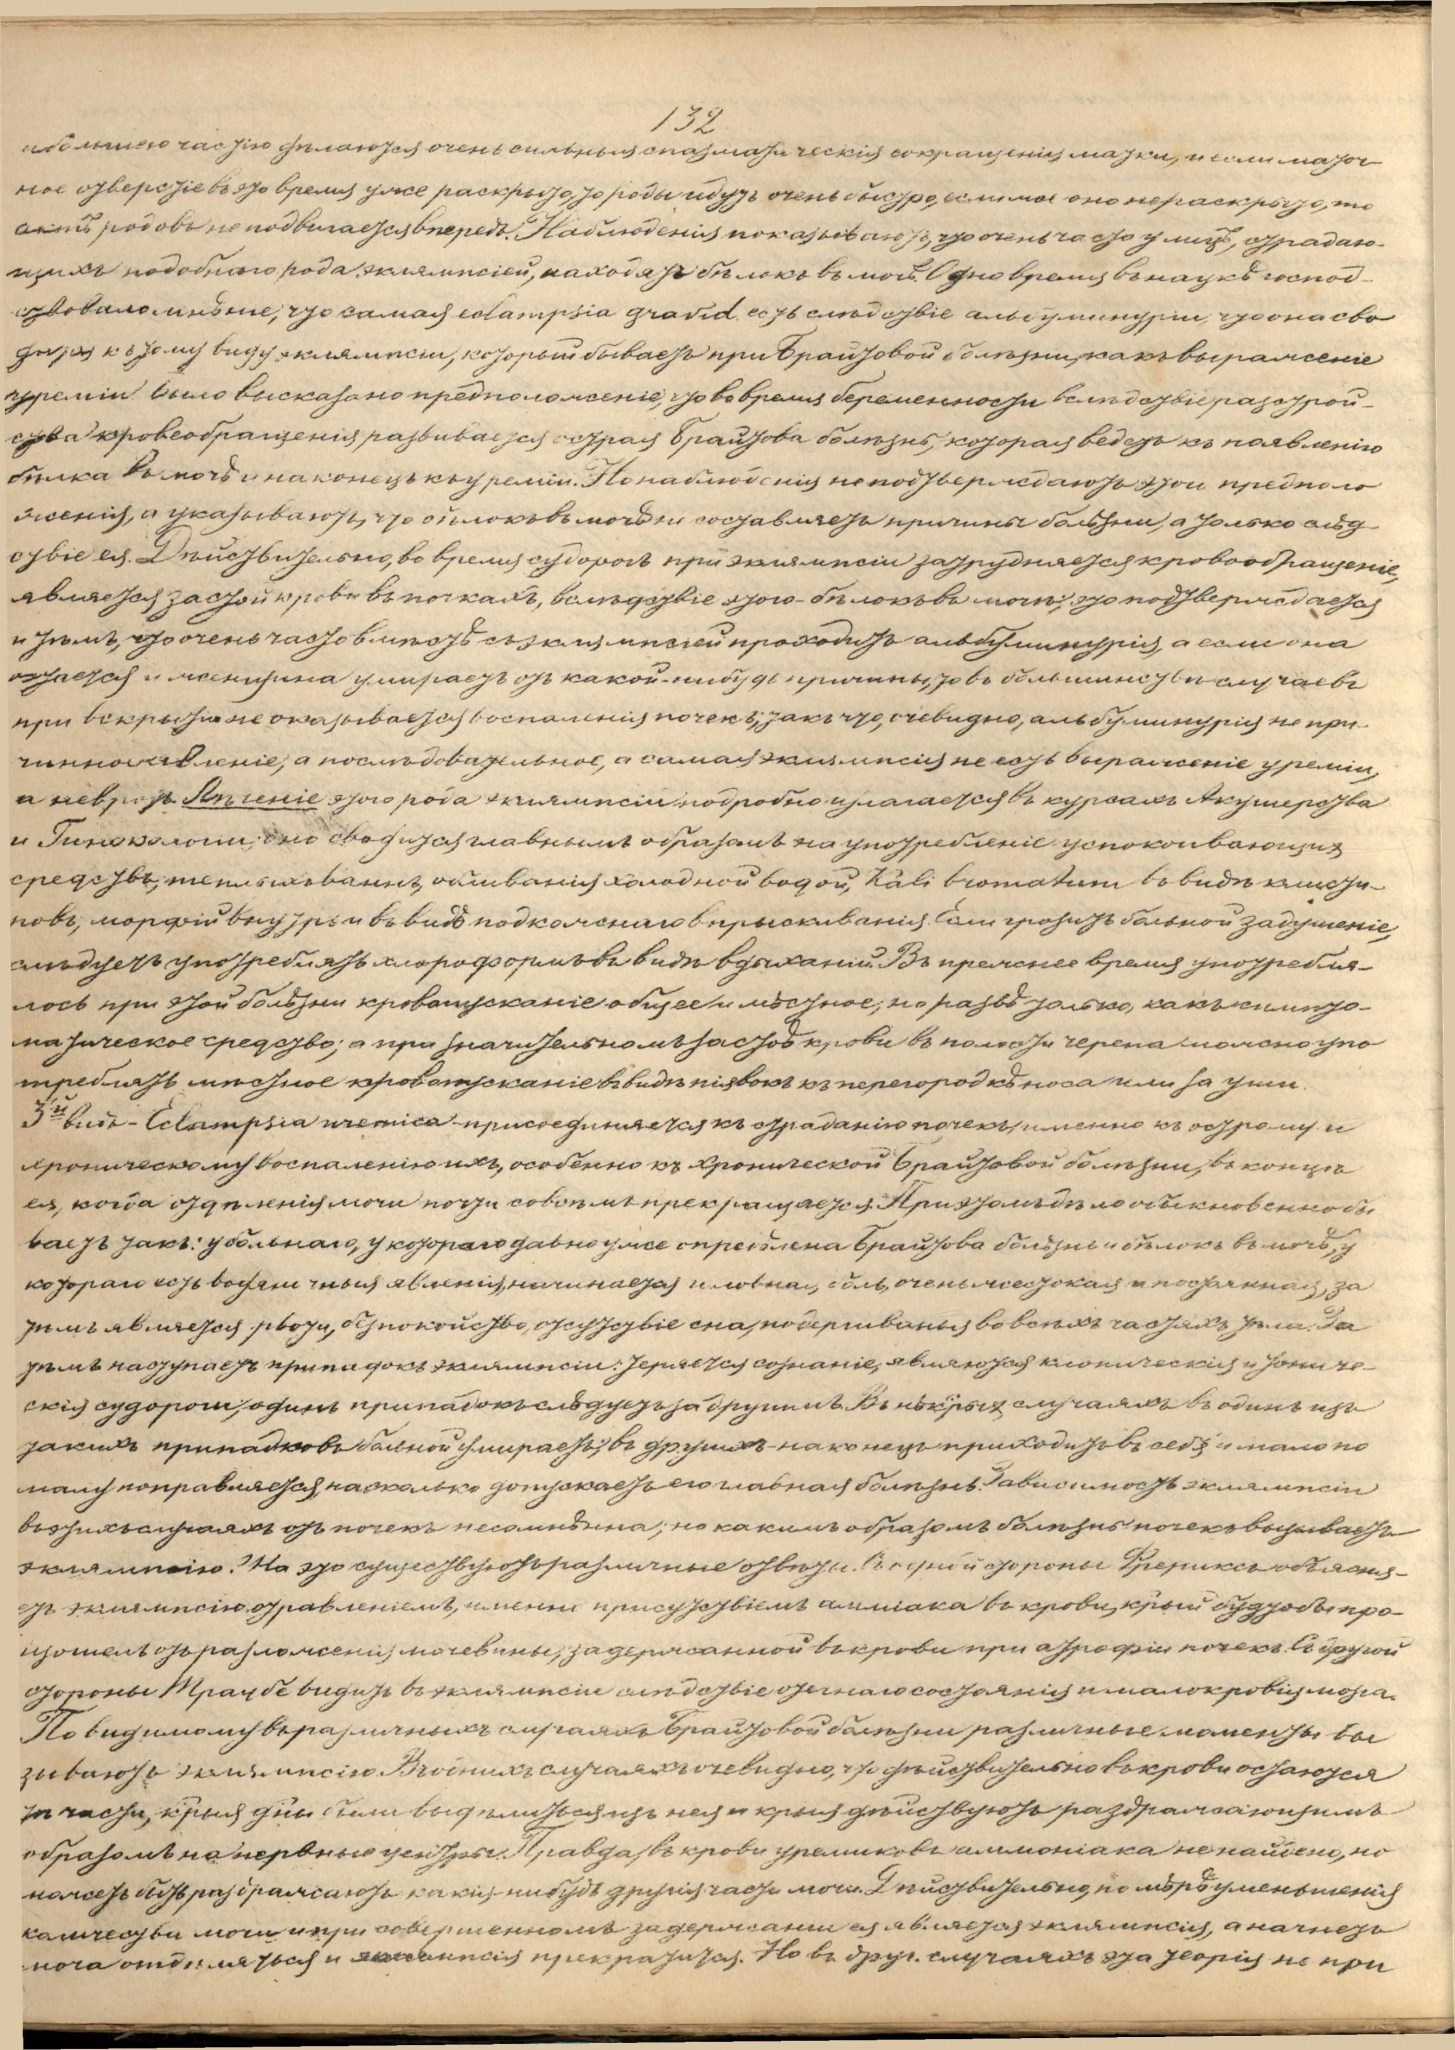 132
и большею частію дѣлаются очень сильныя спазматическія сокращенія матки, и если маточ
ное отверстіе въ это время уже раскрыто, то роды идутъ очень быстро, если же оно не раскрыто, то
актъ родовъ не подвигается впередъ. Наблюденія показываютъ, что очень часто у лицъ, страдаю-
щихъ подобнаго рода эклямпсіей, находятъ бѣлокъ въ мочѣ. Одно время въ наукѣ господ-
ствовало мнѣніе, что самая eclampsia gravid. есть слѣдствіе альбуминуріи, что она сво
дится къ тому виду эклямпсіи, который бываетъ при Брайтовой болѣзни, какъ выраженіе
уреміи. Было высказано предположеніе, что во время беременности вслѣдствіе разстрой-
ства кровеобращенія развивается острая Брайтова болѣзнь, которая ведетъ къ появленію
бѣлка въ мочѣ и наконецъ къ уреміи. Но наблюденія не подтверждаютъ этой предполо
женія, а указываютъ, что бѣлокъ въ мочѣ не составляетъ причины болѣзни, а только слѣд
ствіе ея. Дѣйствительно, во время судорогъ при эклямпсіи затрудняется кровообращеніе,
является застой крови въ почкахъ, вслѣдствіе этого - бѣлокъ въ мочѣ; это подтверждается
и тѣмъ, что очень часто вмѣстѣ съ эклямпсіей проходитъ альбуминурія, а если она
остается и женщина умираетъ отъ какой-нибудь причины, то въ большинствѣ случаевъ
при вскрытіи не оказывается воспаленія почекъ; такъ что, очевидно, альбуминурія не при-
чинное явленіе, а послѣдовательное, а самая эклямпсія не есть выраженіе уреміи,
а неврозъ. Лѣченіе этого рода эклямпсіи подробно излагается въ курсахъ Акушерства
и Гинекологіи; оно сводится главнымъ образомъ на употребленіе успокоивающихъ
средствъ, теплыхъ ваннъ, обливанія холодной водой, Kali bromatum въ видѣ клисти-
ровъ, морфій внутрь и въ видѣ подкожнаго впрыскиванія. Если грозитъ больной задушеніе,
слѣдуетъ употреблять хлороформъ въ видѣ вдыханій. Въ прежнее время употребля-
лось при этой болѣзни кровопусканіе общее и мѣстное; но развѣ только, какъ симпто-
матическое средство; а при значительномъ застоѣ крови въ полости черепа можно упо
треблять мѣстное кровопусканіе въ видѣ піявокъ къ перегородкѣ носа или за уши.
3й видъ - Eclampsia uremica - присоединяется къ страданію почекъ, именно къ острому и
хроническому воспаленію ихъ, особенно къ хронической Брайтовой болѣзни, въ концѣ
ея, когда отдѣленія мочи почти совсѣмъ прекращается. При этомъ дѣло обыкновенно бы
ваетъ такъ: у больнаго, у котораго давно уже опредѣлена Брайтова болѣзнь и бѣлокъ въ мочѣ, у
котораго есть водяничныя явленія, начинается головная боль, очень жестокая и постоянная, за
тѣмъ является рвота, безпокойство, отсутствіе сна, подергиванья во всѣхъ частяхъ тѣла. За
тѣмъ наступаетъ припадокъ эклямпсіи: теряется сознаніе, являются клоническія и тониче-
скія судороги, одинъ припадокъ слѣдуетъ за другимъ. Въ нѣкрыхъ случаяхъ въ одинъ изъ
такихъ припадковъ больной умираетъ; въ другихъ - наконецъ приходитъ въ себя и мало по
малу поправляется, насколько допускаетъ его главная болѣзнь. Зависимость эклямпсіи
въ этихъ случаяхъ отъ почекъ несомнѣнна; но какимъ образомъ болѣзнь почекъ вызываетъ
эклямпсію? На это существуютъ различные отвѣты. Съ одной стороны Фрериксъ объясня-
етъ эклямпсію отравленіемъ, именно присутствіемъ амміака въ крови, крый будто бы про-
изошелъ отъ разложенія мочевины, задержанной въ крови при атрофіи почекъ. Съ другой
стороны Траубе видитъ въ эклямпсіи слѣдствіе отечнаго состоянія и малокровія мозга.
По видимому въ различныхъ случаяхъ Брайтовой болѣзни различные моменты вы
зываютъ эклямпсію. Въ однихъ случаяхъ очевидно, что дѣйствительно въ крови остаются
тѣ части, крыя дны были выдѣлиться изъ нея и крыя дѣйствуютъ раздражающимъ
образомъ на нервные центры. Правда, въ крови уремиковъ амміоніака не найдено, но
можетъ быть раздражаютъ какія нибудь другія части мочи. Дѣйствительно, по мѣрѣ уменьшенія
количества мочи и при совершенномъ задержаніи ея является эклямпсія, а начнетъ
моча отдѣляться и эклямпсія прекратится. Но въ друг. случаяхъ эта теорія не при